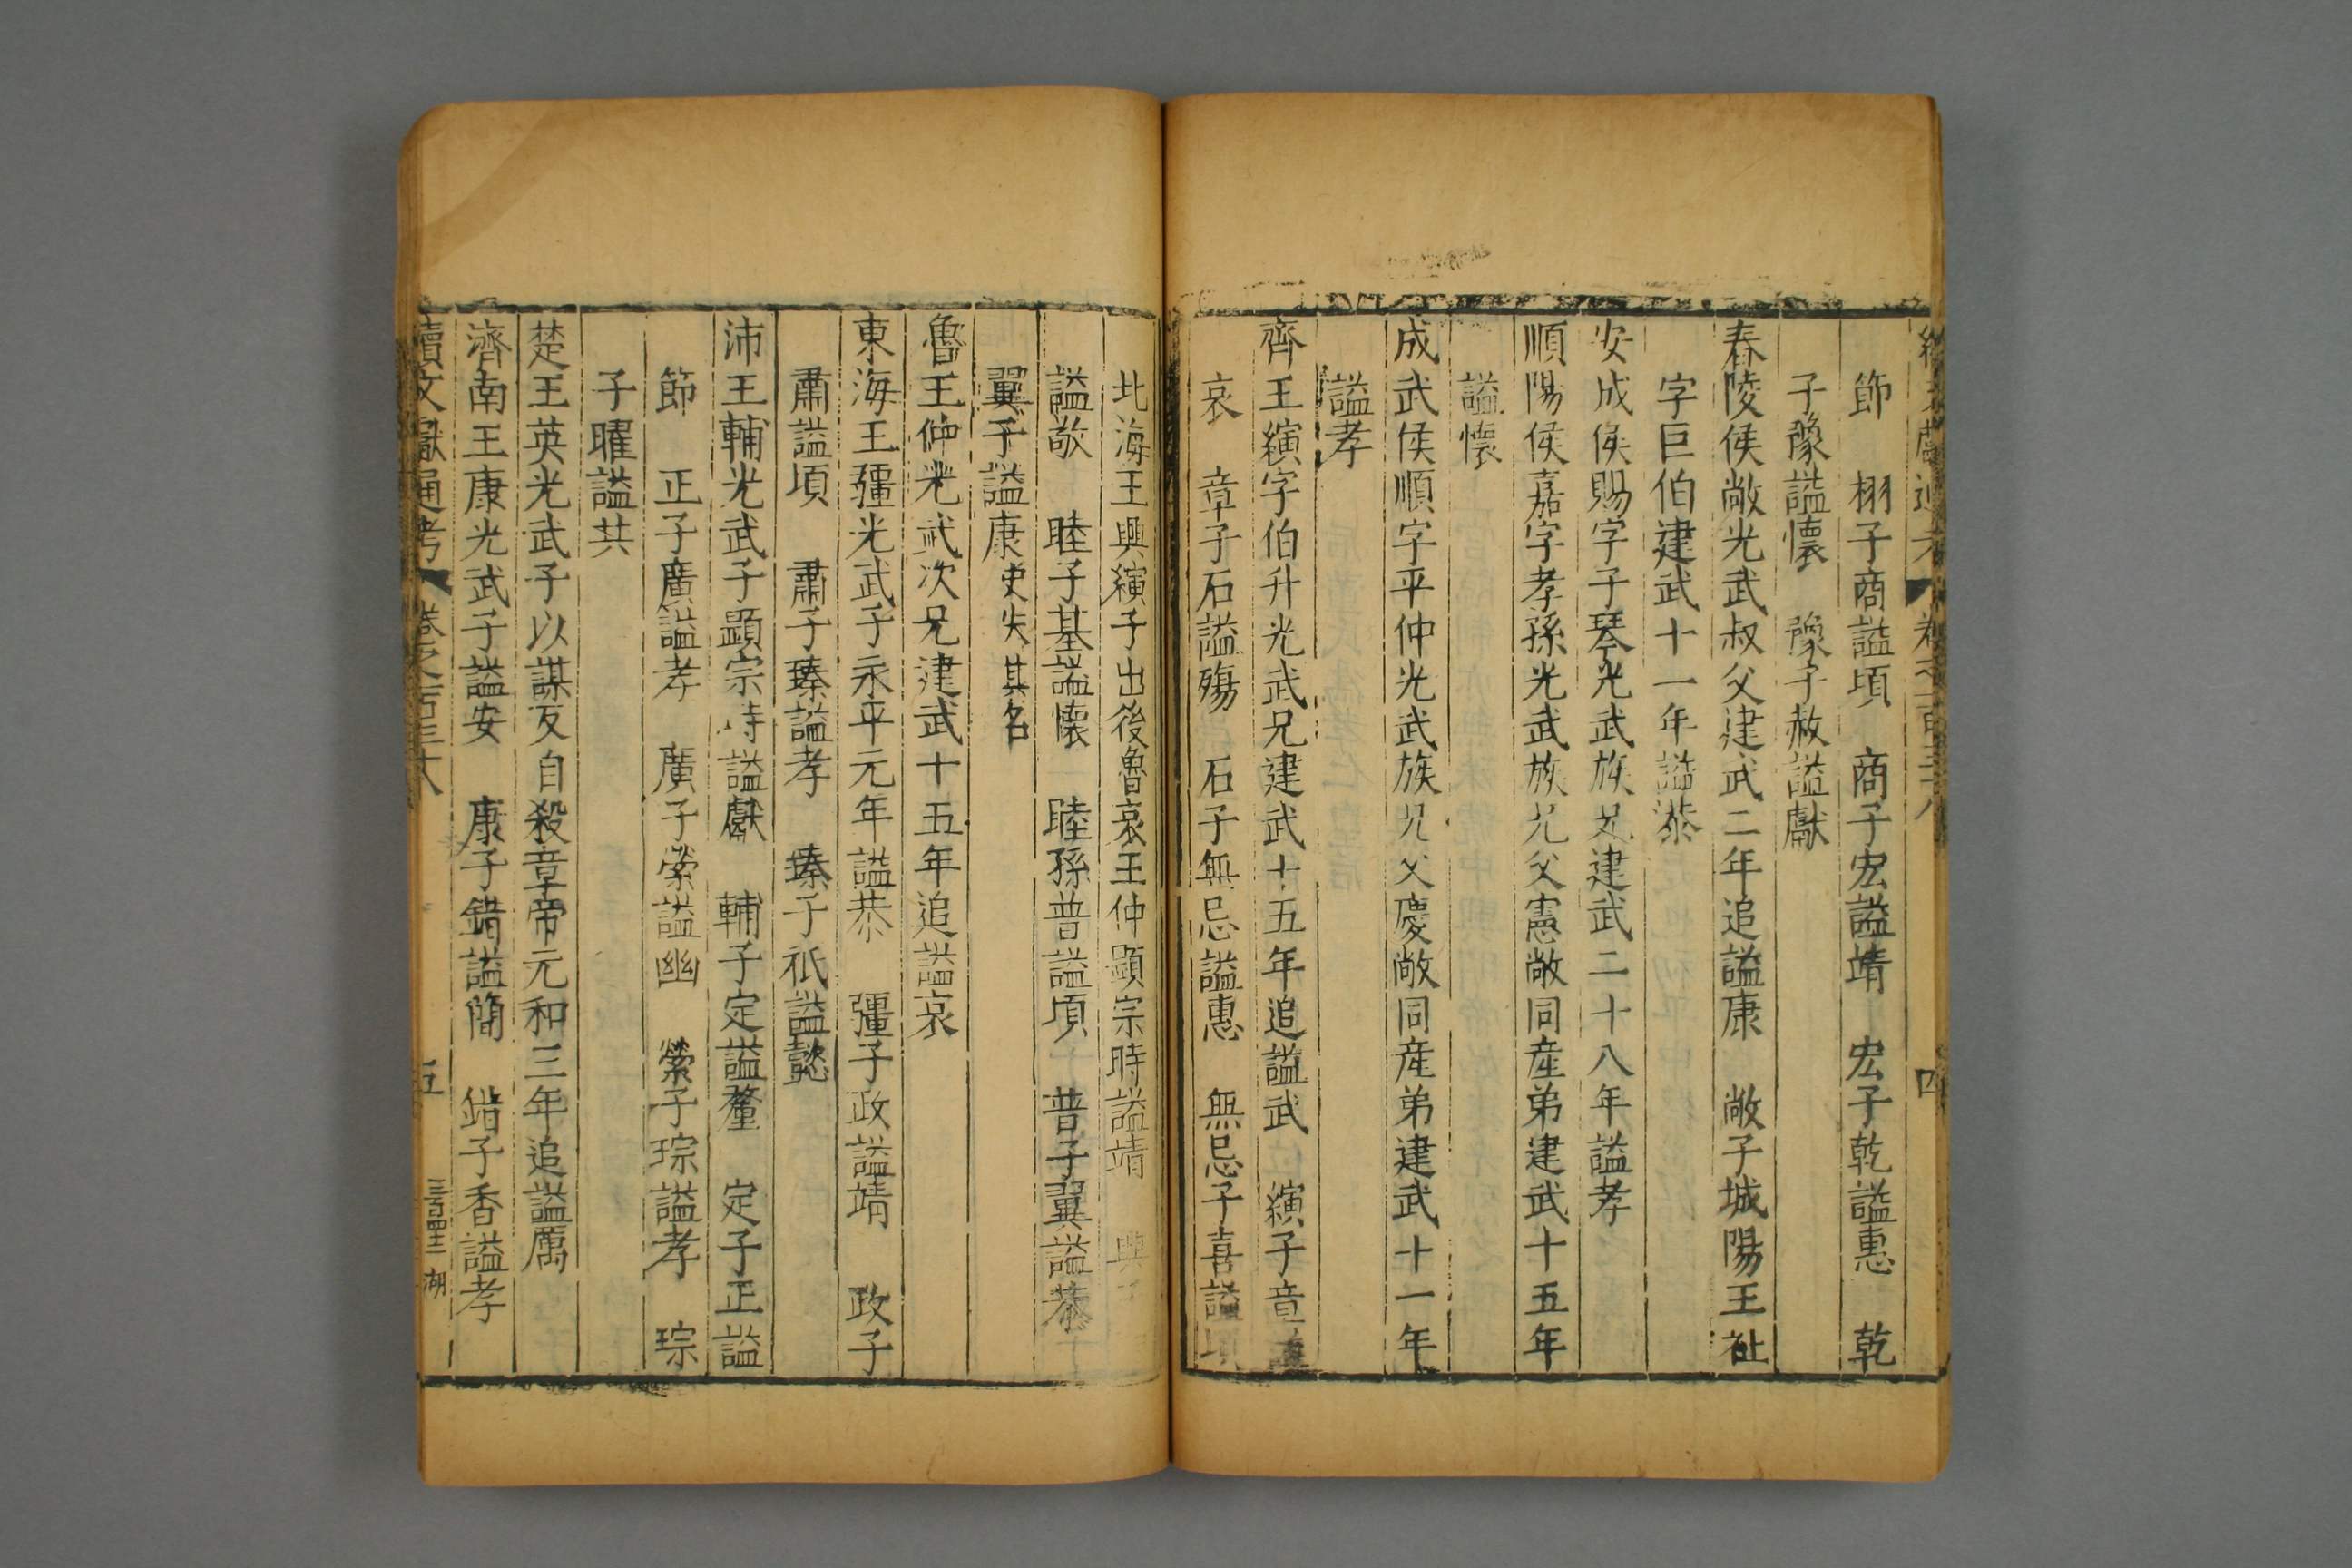 節　栩子商謚頃　商子宏謚靖　宏子乾謚惠　乾
子豫謚懷　豫子赦謚獻
舂陵侯敞光武叔父建武二年追謚康　敞子城陽王祉
字巨伯建武十一年謚恭
安成侯賜字子琴光武族兄建武二十八年謚孝
順陽侯嘉字孝孫光武族兄父憲敞同産弟建武十五年
謚懷
成武侯順字平仲光武族兄父慶敞同産弟建武十一年
謚孝
齊王縯字伯升光武兄建武十五年追謚武　縯子章
哀　章子石謚殤　石子無忌謚惠　無忌子喜謚
北海王興縯子出後魯哀王仲顯宗時謚靖　興
謚敬　睦子基謚懷　睦孫普謚頃　普子翼謚恭
翼子謚康史失其名
魯王仲光武次兄建武十五年追謚哀
東海王彊光武子永平元年謚恭　彊子政謚靖　政子
肅謚頃　肅子臻謚孝　臻子祇謚懿
沛王輔光武子顯宗時謚獻　輔子定謚釐　定子正謚
節　正子廣謚孝　廣子縈謚幽　縈子琮謚孝　琮
子曜謚共
楚王英光武子以謀反自殺章帝元和三年追謚厲
濟南王康光武子謚安　康子錯謚簡　錯子香謚孝
續文獻通考　卷之一百三十八　五
湖